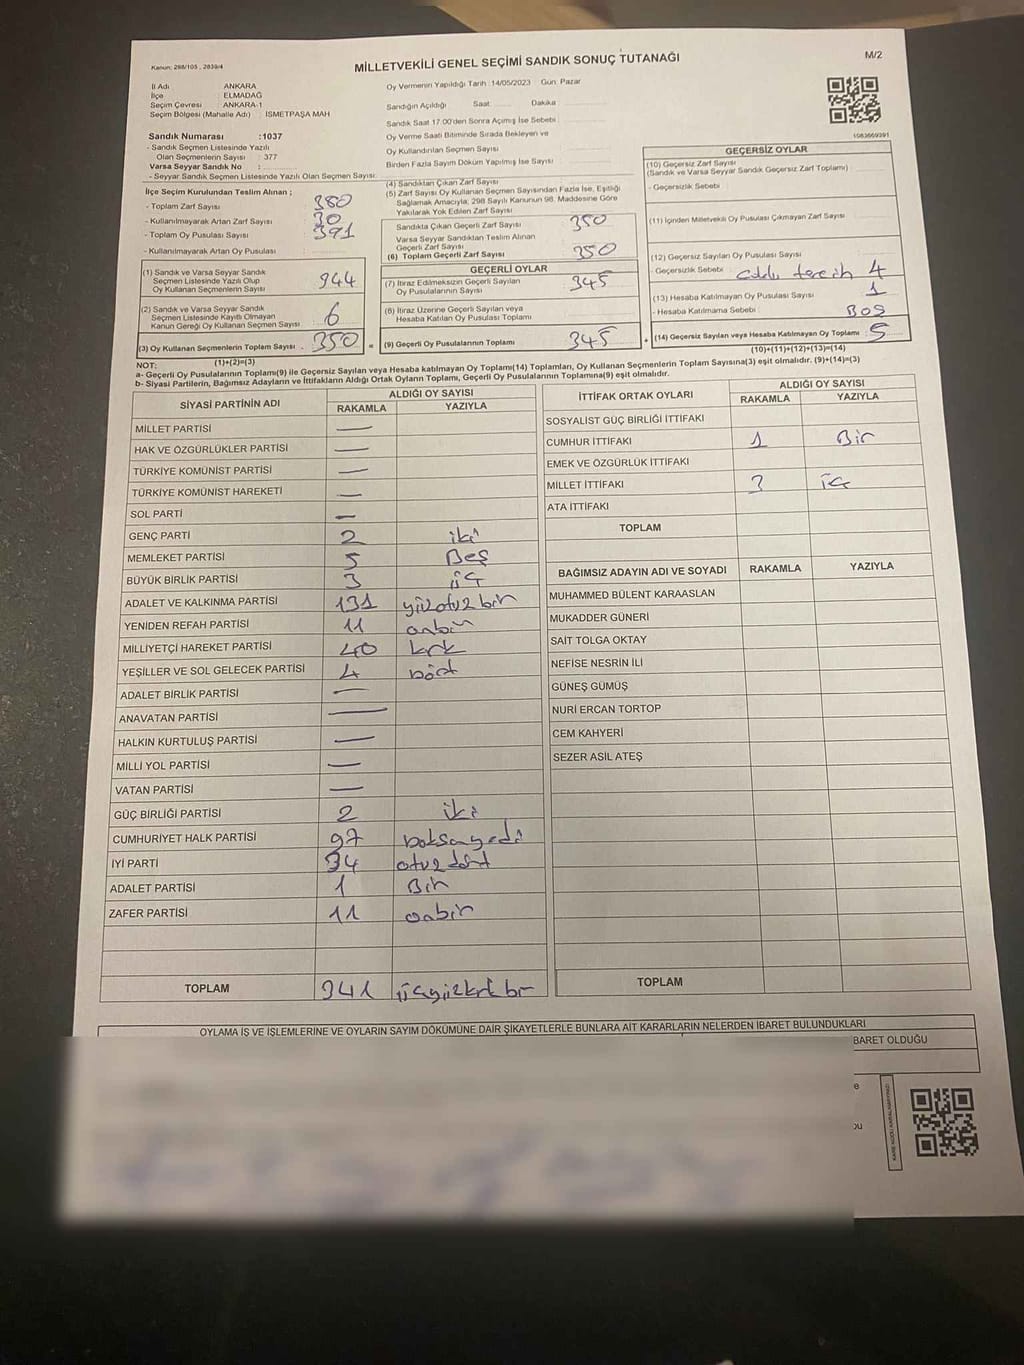 Kanun: 298/105 , 2839/4
MİLLETVEKİLİ GENEL SEÇİMİ SANDIK SONUÇ TUTANAĞI
M/2
İl Adı ANKARA
İlçe ELMADAĞ
Seçim Çevresi ANKARA-1
Seçim Bölgesi (Mahalle Adı) : İSMETPAŞA MAH
Sandık Numarası :1037
- Sandık Seçmen Listesinde Yazılı
Olan Seçmenlerin Sayısı : 377
Varsa Seyyar Sandık No :
- Seyyar Sandık Seçmen Listesinde Yazılı Olan Seçmen Sayısı:
İlçe Seçim Kurulundan Teslim Alınan ;
- Toplam Zarf Sayısı 380
- Kullanılmayarak Artan Zarf Sayısı 30
- Toplam Oy Pusulası Sayısı 391
- Kullanılmayarak Artan Oy Pusulası :
(1) Sandık ve Varsa Seyyar Sandık
Seçmen Listesinde Yazılı Olup
Oy Kullanan Seçmenlerin Sayısı 344
(2) Sandık ve Varsa Seyyar Sandık
Seçmen Listesinde Kayıtlı Olmayan
Kanun Gereği Oy Kullanan Seçmen Sayısı 6
(3) Oy Kullanan Seçmenlerin Toplam Sayısı . 350
(1)+(2)=(3)
Oy Vermenin Yapıldığı Tarih :14/05/2023 Gün: Pazar
Sandığın Açıldığı Saat Dakika
Sandık Saat 17:00'den Sonra Açımış İse Sebebi :
Oy Verme Saati Bitiminde Sırada Bekleyen ve
Oy Kullandırılan Seçmen Sayısı
Birden Fazla Sayım Döküm Yapılmış İse Sayısı
(4) Sandıktan Çıkan Zarf Sayısı
(5) Zarf Sayısı Oy Kullanan Seçmen Sayısından Fazla İse, Eşitliği
Sağlamak Amacıyla; 298 Sayılı Kanunun 98. Maddesine Göre
Yakılarak Yok Edilen Zarf Sayısı
Sandıkta Çıkan Geçerli Zarf Sayısı 350
Varsa Seyyar Sandıktan Teslim Alınan
Geçerli Zarf Sayısı
(6) Toplam Geçerli Zarf Sayısı 350
GEÇERLİ OYLAR
(7) İtiraz Edilmeksizin Geçerli Sayılan
Oy Pusulalarının Sayısı 345
(8) İtiraz Üzerine Geçerli Sayılan veya
Hesaba Katılan Oy Pusulası Toplamı
= (9) Geçerli Oy Pusulalarının Toplamı 345 +
1083669391
GEÇERSİZ OYLAR
(10) Geçersiz Zarf Sayısı
(Sandık ve Varsa Seyyar Sandık Geçersiz Zarf Toplamı)
- Geçersizlik Sebebi
(11) İçinden Milletvekili Oy Pusulası Çıkmayan Zarf Sayısı
(12) Geçersiz Sayılan Oy Pusulası Sayısı
- Geçersizlik Sebebi 4
(13) Hesaba Katılmayan Oy Pusulası Sayısı 1
- Hesaba Katılmama Sebebi : BOŞ
(14) Geçersiz Sayılan veya Hesaba Katılmayan Oy Toplamı : 5
(10)+(11)+(12)+(13)=(14)
NOT:
a- Geçerli Oy Pusulalarının Toplamı(9) ile Geçersiz Sayılan veya Hesaba katılmayan Oy Toplamı(14) Toplamları, Oy Kullanan Seçmenlerin Toplam Sayısına(3) eşit olmalıdır. (9)+(14)=(3)
b- Siyasi Partilerin, Bağımsız Adayların ve İttifakların Aldığı Ortak Oyların Toplamı, Geçerli Oy Pusulalarının Toplamına(9) eşit olmalıdır.
SİYASİ PARTİNİN ADI ALDIĞI OY SAYISI
RAKAMLA YAZIYLA
MİLLET PARTİSI —
HAK VE ÖZGÜRLÜKLER PARTİSİ —
TÜRKİYE KOMÜNİST PARTİSİ —
TÜRKİYE KOMÜNİST HAREKETİ —
SOL PARTİ —
GENÇ PARTİ 2 iki
MEMLEKET PARTİSİ 5 Beş
BÜYÜK BİRLİK PARTİSİ 3 üç
ADALET VE KALKINMA PARTİSİ 131 yüzotuzbir
YENİDEN REFAH PARTİSİ 11 onbir
MİLLİYETÇİ HAREKET PARTİSİ 40 kırk
YEŞİLLER VE SOL GELECEK PARTİSİ 4 Dört
ADALET BİRLİK PARTİSİ —
ANAVATAN PARTİSİ —
HALKIN KURTULUŞ PARTİSİ —
MİLLİ YOL PARTİSİ —
VATAN PARTİSİ —
GÜÇ BİRLİĞİ PARTİSİ 2 iki
CUMHURİYET HALK PARTİSİ 97 Doksanyedi
İYİ PARTİ 34 otuzdört
ADALET PARTİSİ 1 Bir
ZAFER PARTİSİ 11 onbir
TOPLAM 341 üçyüzkırkbir
İTTİFAK ORTAK OYLARI ALDIĞI OY SAYISI
RAKAMLA YAZIYLA
SOSYALİST GÜÇ BİRLİĞİ İTTİFAKI
CUMHUR İTTİFAKI 1 Bir
EMEK VE ÖZGÜRLÜK İTTİFAKI
MİLLET İTTİFAKI 3 üç
ATA İTTİFAKI
TOPLAM
BAĞIMSIZ ADAYIN ADI VE SOYADI RAKAMLA YAZIYLA
MUHAMMED BÜLENT KARAASLAN
MUKADDER GÜNERİ
SAİT TOLGA OKTAY
NEFİSE NESRİN İLİ
GÜNEŞ GÜMÜŞ
NURİ ERCAN TORTOP
CEM KAHYERİ
SEZER ASİL ATEŞ
TOPLAM
OYLAMA İŞ VE İŞLEMLERİNE VE OYLARIN SAYIM DÖKÜMÜNE DAİR ŞİKAYETLERLE BUNLARA AİT KARARLARIN NELERDEN İBARET BULUNDUKLARI
BARET OLDUĞU